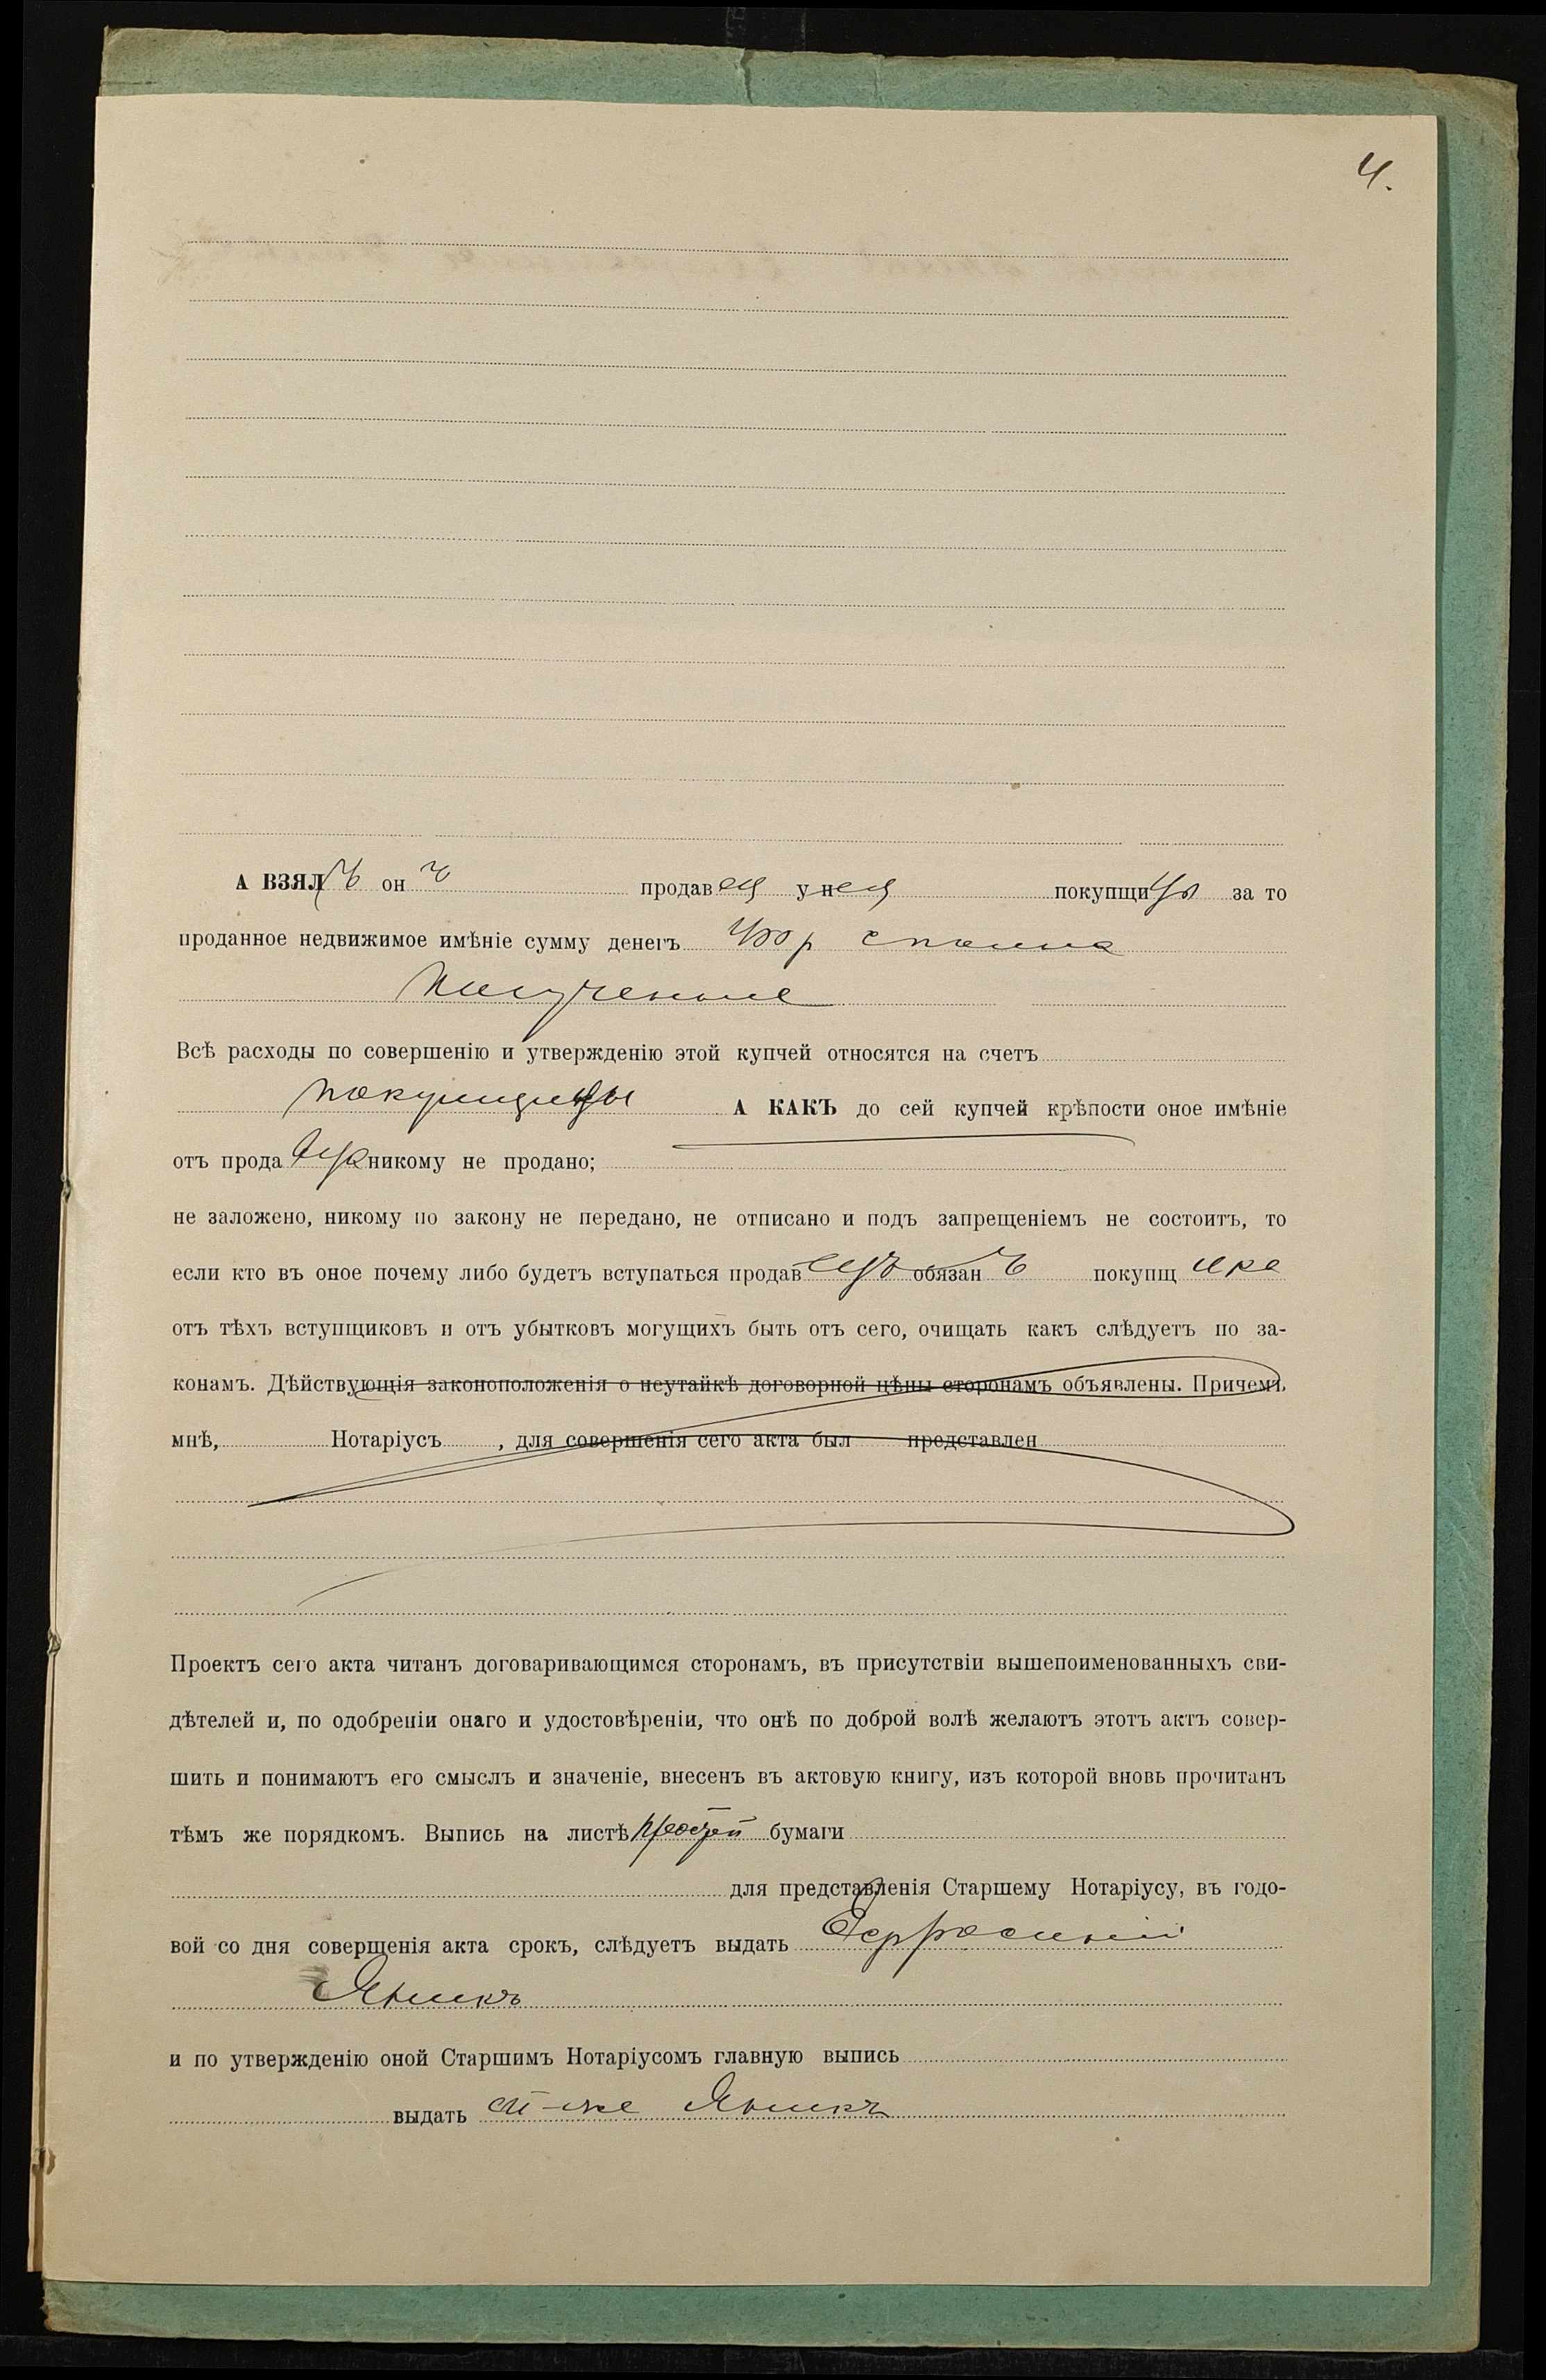 4.
А ВЗЯЛЪ онъ продавец у нея покупщицы за то
проданное недвижимое имѣніе сумму денегъ сполна
полученные
Всѣ расходы по совершенію и утвержденію этой купчей относятся на счетъ
покупщицы А КАКЪ до сей купчей крѣпости оное имѣніе
отъ прода никому не продано;
не заложено, никому по закону не передано, не отписано и подъ запрещеніемъ не состоитъ, то
если кто въ оное почему либо будетъ вступаться продавецъ обязанъ покупщика
отъ тѣхъ вступщиковъ и отъ убытковъ могущихъ быть отъ сего, очищать какъ слѣдуетъ по за-
конамъ. Дѣйствующія законоположенія о неутайкѣ договорной цѣны сторонамъ объявлены. Причемъ
мнѣ, Нотаріусъ , для совершенія сего акта был представлен
Проектъ сего акта читанъ договаривающимся сторонамъ, въ присутствіи вышепоименованныхъ сви-
дѣтелей и, по одобреніи онаго и удостовѣреніи, что онѣ по доброй волѣ желаютъ этотъ актъ совер-
шить и понимаютъ его смыслъ и значеніе, внесенъ въ актовую книгу, изъ которой вновь прочитанъ
тѣмъ же порядкомъ. Выпись на листѣ простой бумаги
для представленія Старшему Нотаріусу, въ годо-
вой со дня совершенія акта срокъ, слѣдуетъ выдать
и по утвержденію оной Старшимъ Нотаріусомъ главную выпись
выдать